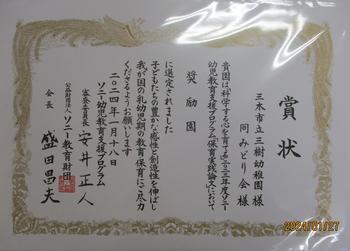 賞状
三木市立三樹幼稚園 様
同みどり会 様
貴園は科学する心を育てる二〇二三年度ソニー
幼児教育支援プログラム「保育実践論文」において
奨励園
に選定されました
子どもたちの豊かな感性と創造性を伸ばし
我が国の乳幼児期の教育・保育にご尽力
くださるようお願いします
二〇二四年一月十八日
ソニー幼児教育支援プログラム
審査委員長 安井正人
公益財団法人 ソニー教育財団
会長 盛田昌夫
2024/01/27